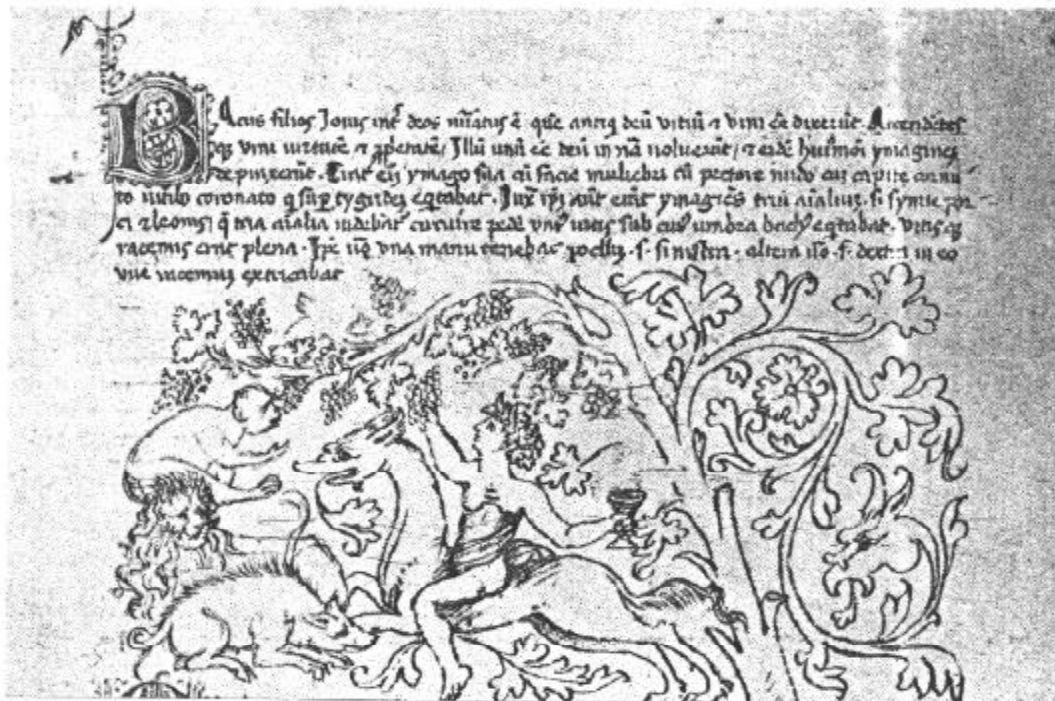 BAcus filius Jouis int̃ deos nũatus ẽ quẽ antiq deũ vitiũ ⁊ vini ẽe dixerũt. Attendẽtes
qȝ vini uirtutẽ ⁊ Illũ unũ ẽe deũ in noluerũt / ⁊ eidẽ huiꝰmõi ymagines
depinxerũt. Erat eñ ymago sua cũ facie muliebri cũ pectore nudo cũ capite cornu
to coronato q̃ sup tygrides eq̃tabat. Jux̃ ip̃m aũt erãt ymagiẽs triũ aĩaliũ. s̃. symie por
ci ⁊ leonis; q̃ tria aĩalia uidebãt᷑ currere vnꝰ uitis sub cuiꝰ umbra bachꝰ eq̃tabat. Vitis qȝ
racemis erat plena. Ip̃e vna manu tenebat .s. sinistra. altera ũo .s. dextra in eo
vue racemum